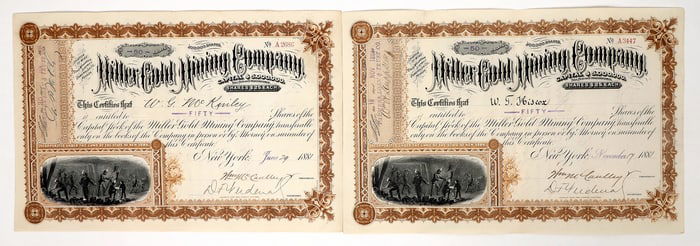 50
No A2686
Miller Gold Mining Company
CAPITAL $5,000,000.
SHARES $25 EACH
This Certifies that W. G. McKinley
is entitled to FIFTY Shares of the
Capital Stock of the Miller Gold Mining Company transferable
only on the books of the Company in person or by Attorney on surrender of
this Certificate.
New York June 29 1881
Wm McCaulley
50
No A3447
Miller Gold Mining Company
CAPITAL $5,000,000.
SHARES $25 EACH
This Certifies that W. T. Hiscox
is entitled to FIFTY Shares of the
Capital Stock of the Miller Gold Mining Company transferable
only on the books of the Company in person or by Attorney on surrender of
this Certificate.
New York November 7 1881
Wm McCaulley